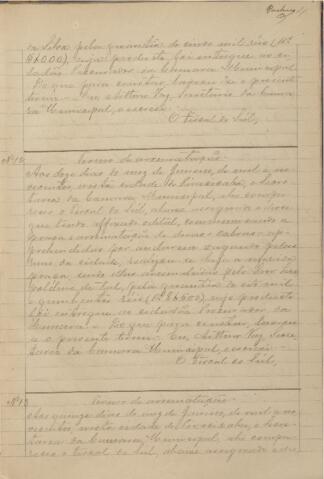 da Silva pela quantia de cinco mil réis (Rs.
5$000), cujo producto foi entregue ao ci-
dadão Procurador da Camara Municipal.
Do que para constar lavrou-se o presente
termo. Eu, Arthur Vaz, Secretario da Cama-
ra Municipal, escrevi.
O Fiscal do Sul,
Nº 12 Termo de arrematação
Aos doze dias do mez de Janeiro, de mil e no-
vecentos, nesta cidade de Piracicaba, e Secre-
taria da Camara Municipal, ahi compa-
receu o Fiscal do Sul, abaixo assignado e disse
que tendo affixado edital, annunciando a
arrematação de cabras ap-
prehendidas por andarem vagando pelas
ruas da cidade,
pela quantia de seis mil
e quinhentos réis (Rs. 6$500), cujo producto
foi entregue ao cidadão Procurador da
Camara. Do que para constar, lavrou-se
o presente termo. Eu, Arthur Vaz, Secre-
tario da Camara Municipal, escrevi.
O Fiscal do Sul,
Nº 13 Termo de arrematação
Aos quinze dias do mez de Janeiro, de mil e no-
vecentos, nesta cidade de Piracicaba, e Secre-
taria da Camara Municipal, ahi compa-
receu o Fiscal do Sul, abaixo assignado e dis-